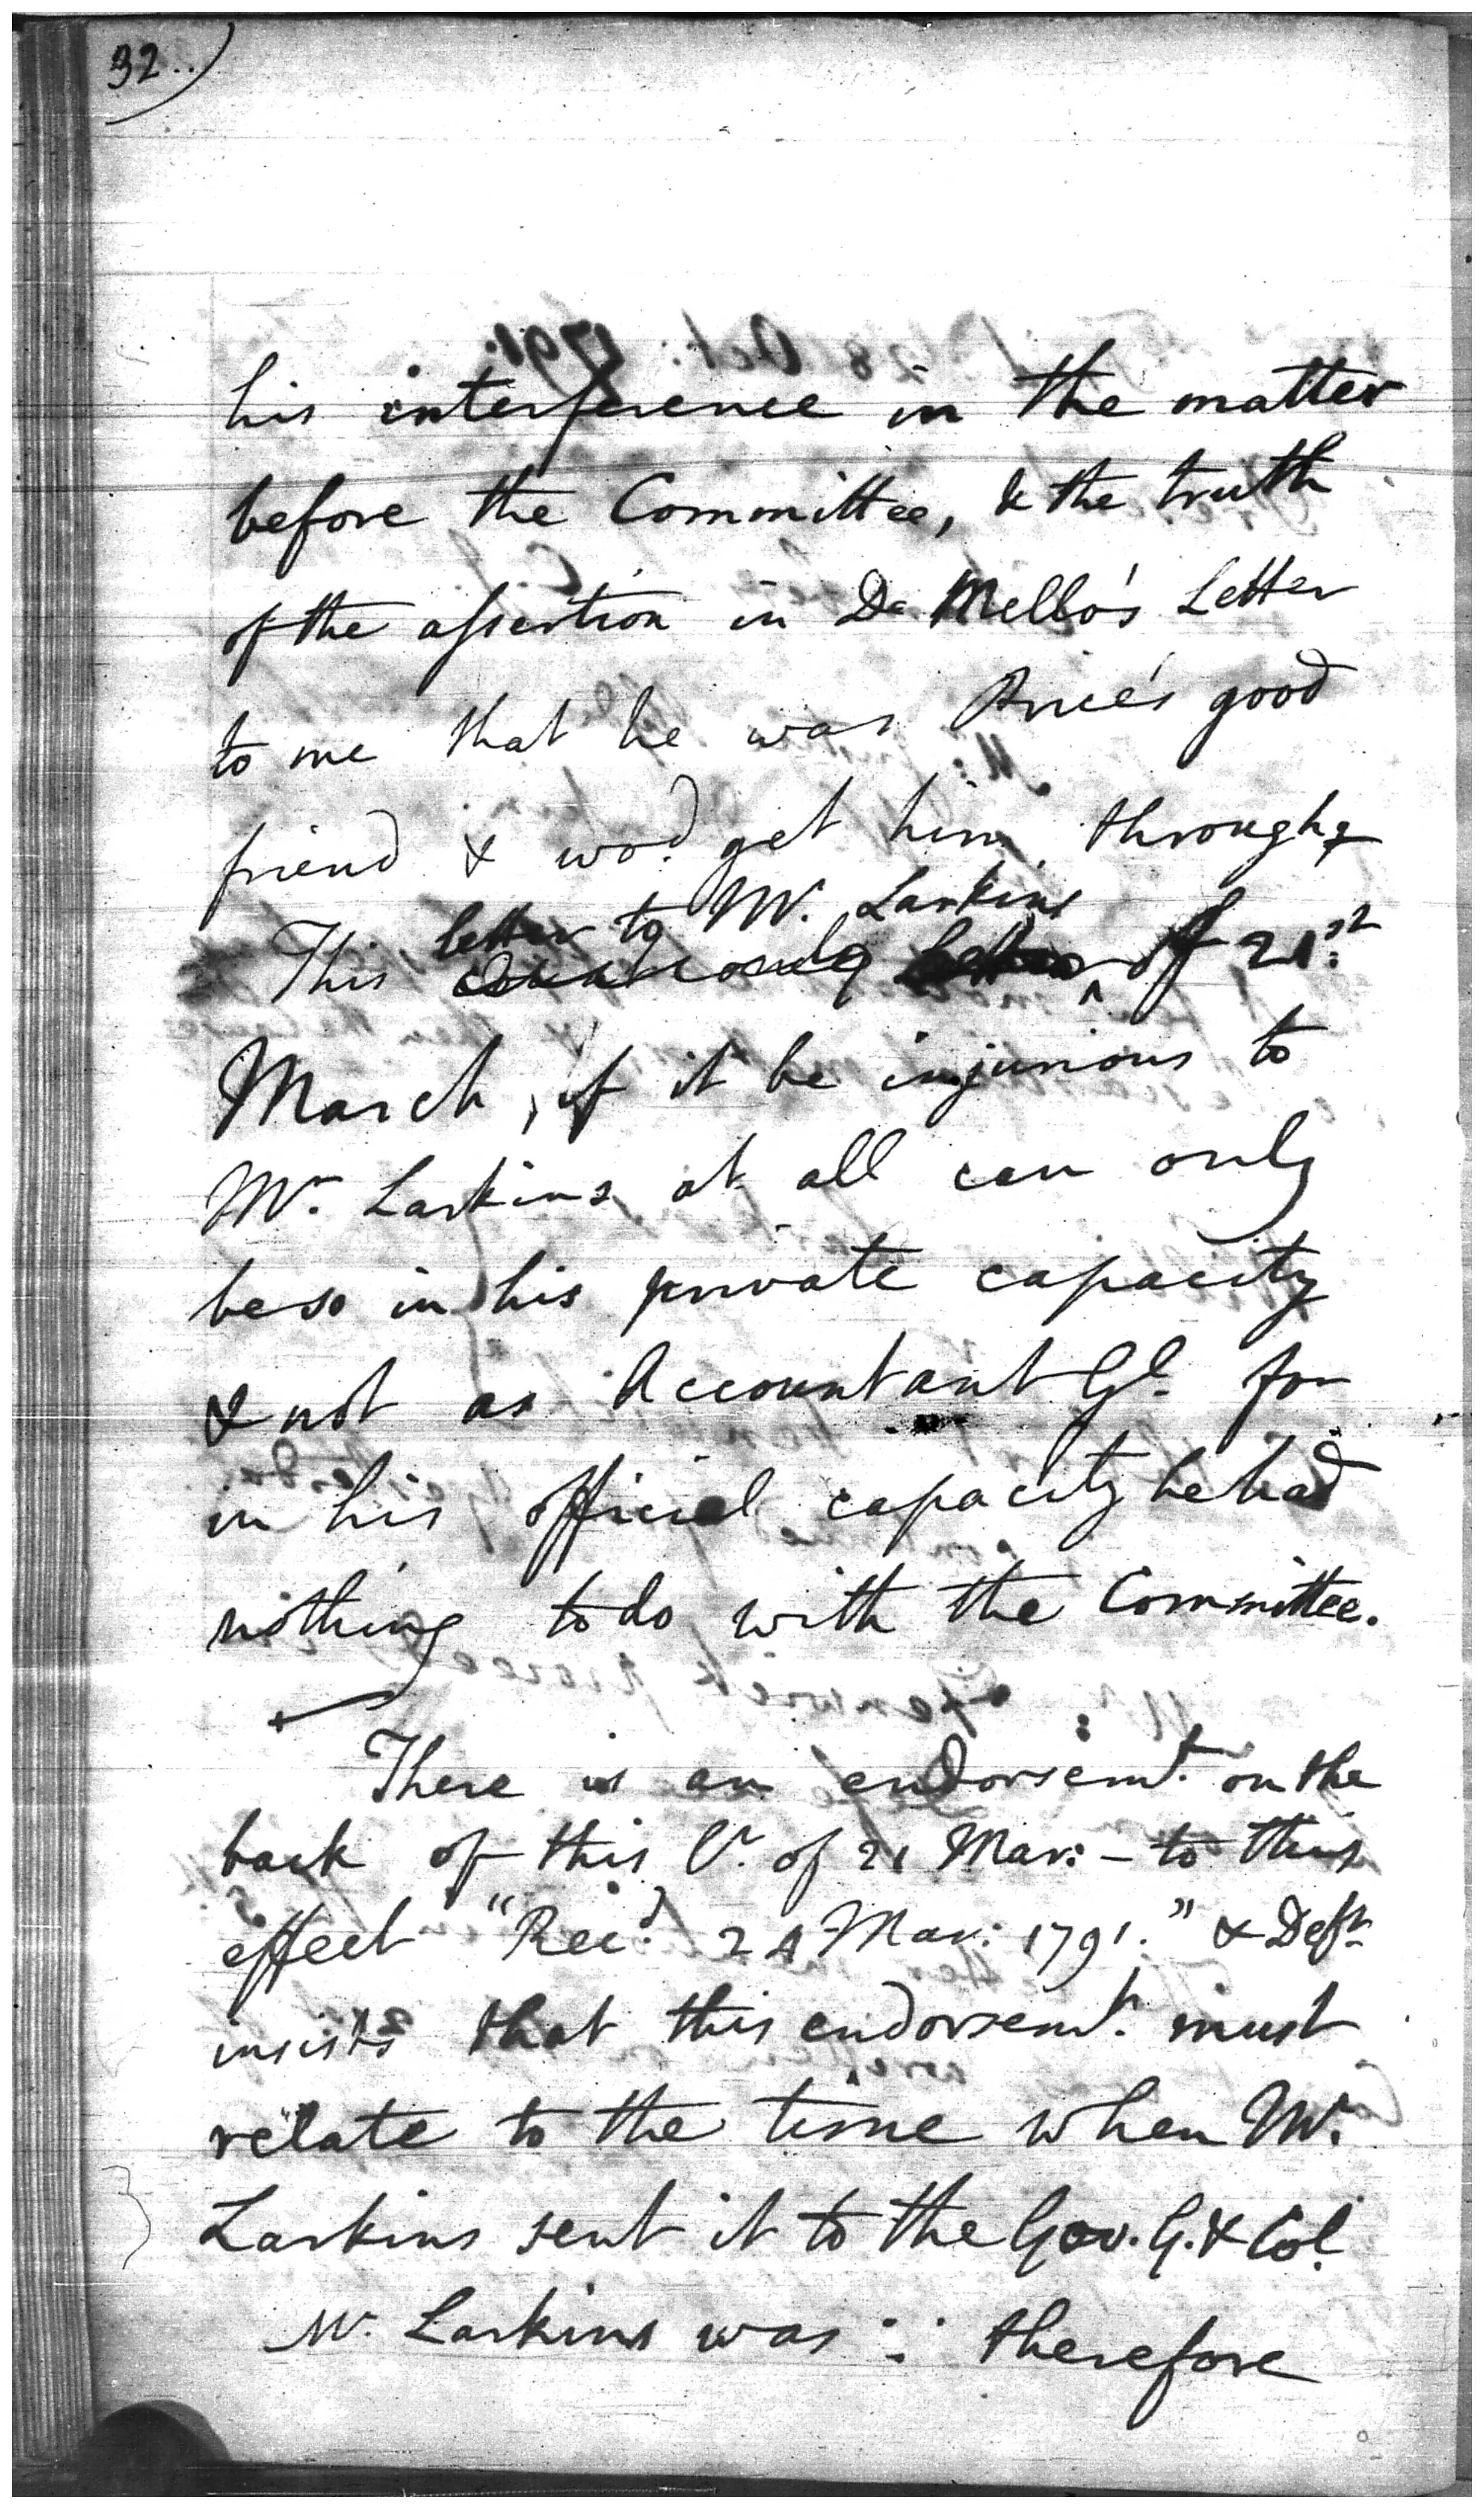 32
his interference in the matter
before the Committee, & the truth
of the assertion in De Mello's Letter
to me that he was Price's good
friend & wod. get him through
This letter to Mr. Larkins of 21st
March, if it be injurious to
Mr. Larkins at all can only
be so in his private capacity
& not as Accountant Gl. for
in his official capacity he had
nothing to do with the Committee.
There is an endorsemt. on the
back of this Lr. of 21 Mar: - to this
effect "Recd. 24 Mar: 1791." & Deft.
insists that this endorsemt. must
relate to the time when Mr.
Larkins sent it to the Gov. G. & Col.
Mr. Larkins was ∴ therefore